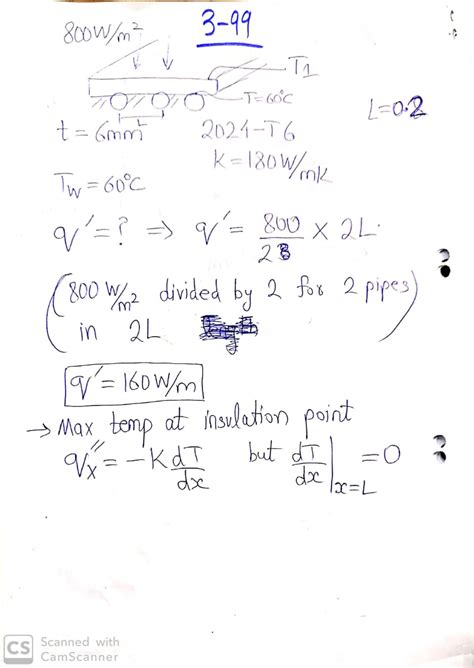 3-99
800W/m²
T1
T=60°C
L=0.2
t = 6mm
L
2024-T6
K=180W/mK
Tw = 60°C
q'=? ⇒ q' = 800/2 × 2L
(800 W/m² divided by 2 for 2 pipes)
in 2L
q' = 160W/m
→ Max temp at insulation point
q''x = -K dT/dx but dT/dx |x=L = 0
CS Scanned with
CamScanner